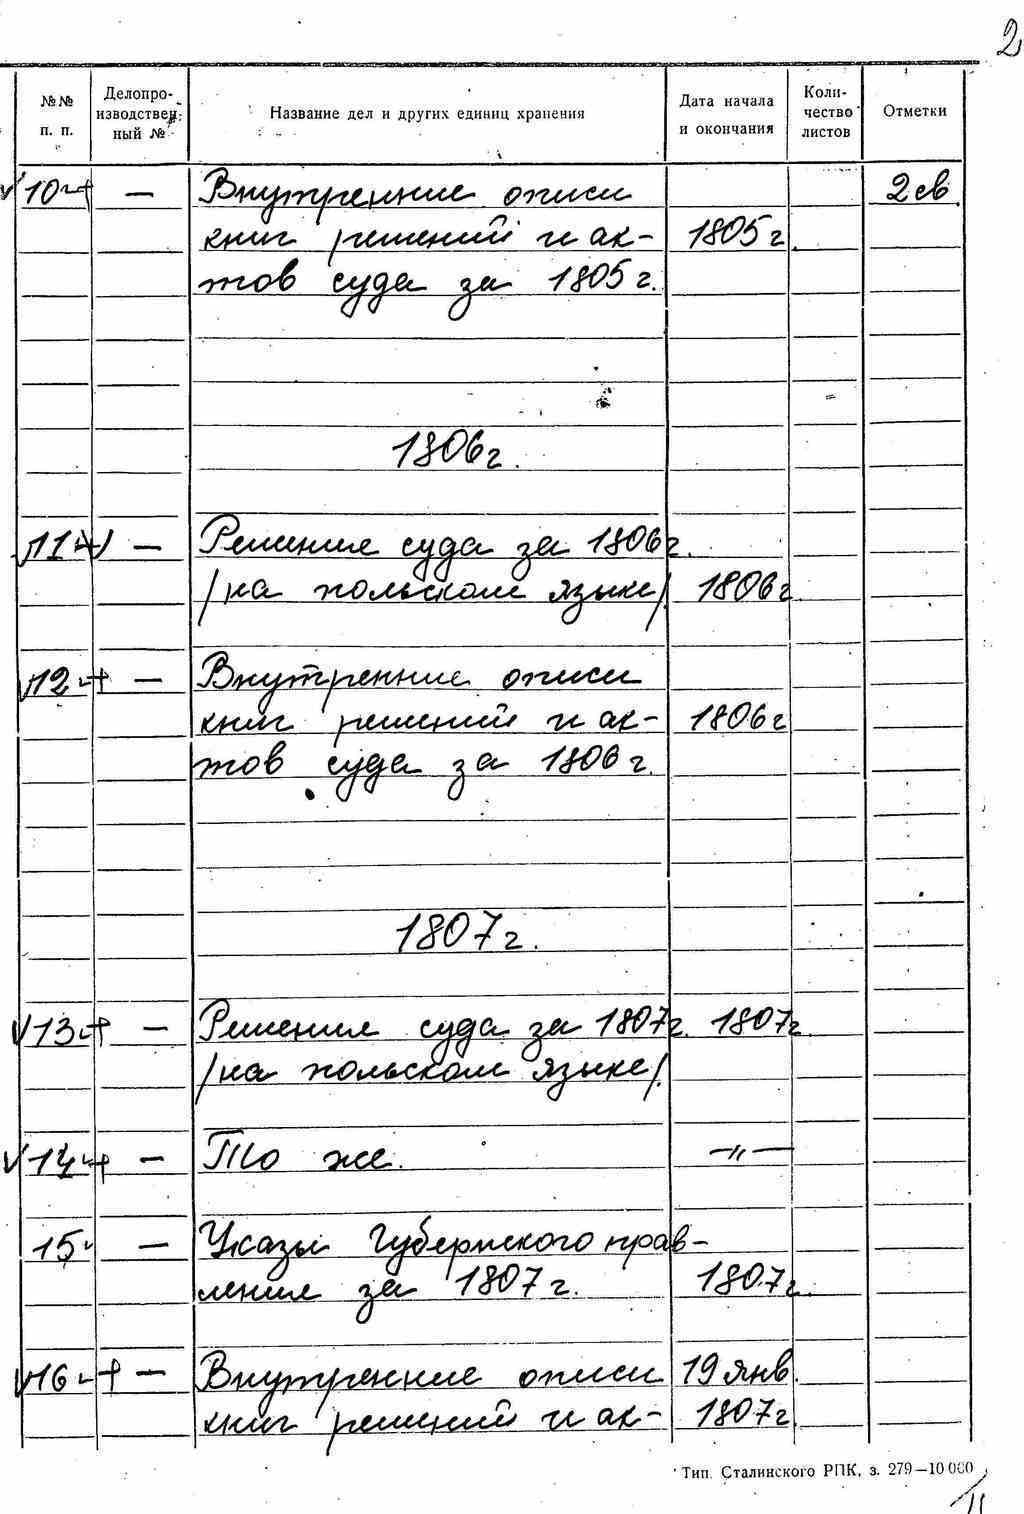 2
№№ п. п.
Делопро-
изводствен-
ный №
Название дел и других единиц хранения
Дата начала
и окончания
Коли-
чество
листов
Отметки
10 — Внутренние описи 2 св.
книг решений и ак- 1805 г.
тов суда за 1805 г.
1806 г.
11 — Решения суда за 1806 г.
/на польском языке/. 1806 г.
12 — Внутренние описи
книг решений и ак- 1806 г.
тов суда за 1806 г.
1807 г.
13 — Решения суда за 1807 г. 1807 г.
/на польском языке/.
14 — То же. —"—
15 — Указы Губернского прав-
ления за 1807 г. 1807 г.
16 — Внутренние описи 19 янв.
книг решений и ак- 1807 г.
Тип. Сталинского РПК, з. 279—10 000